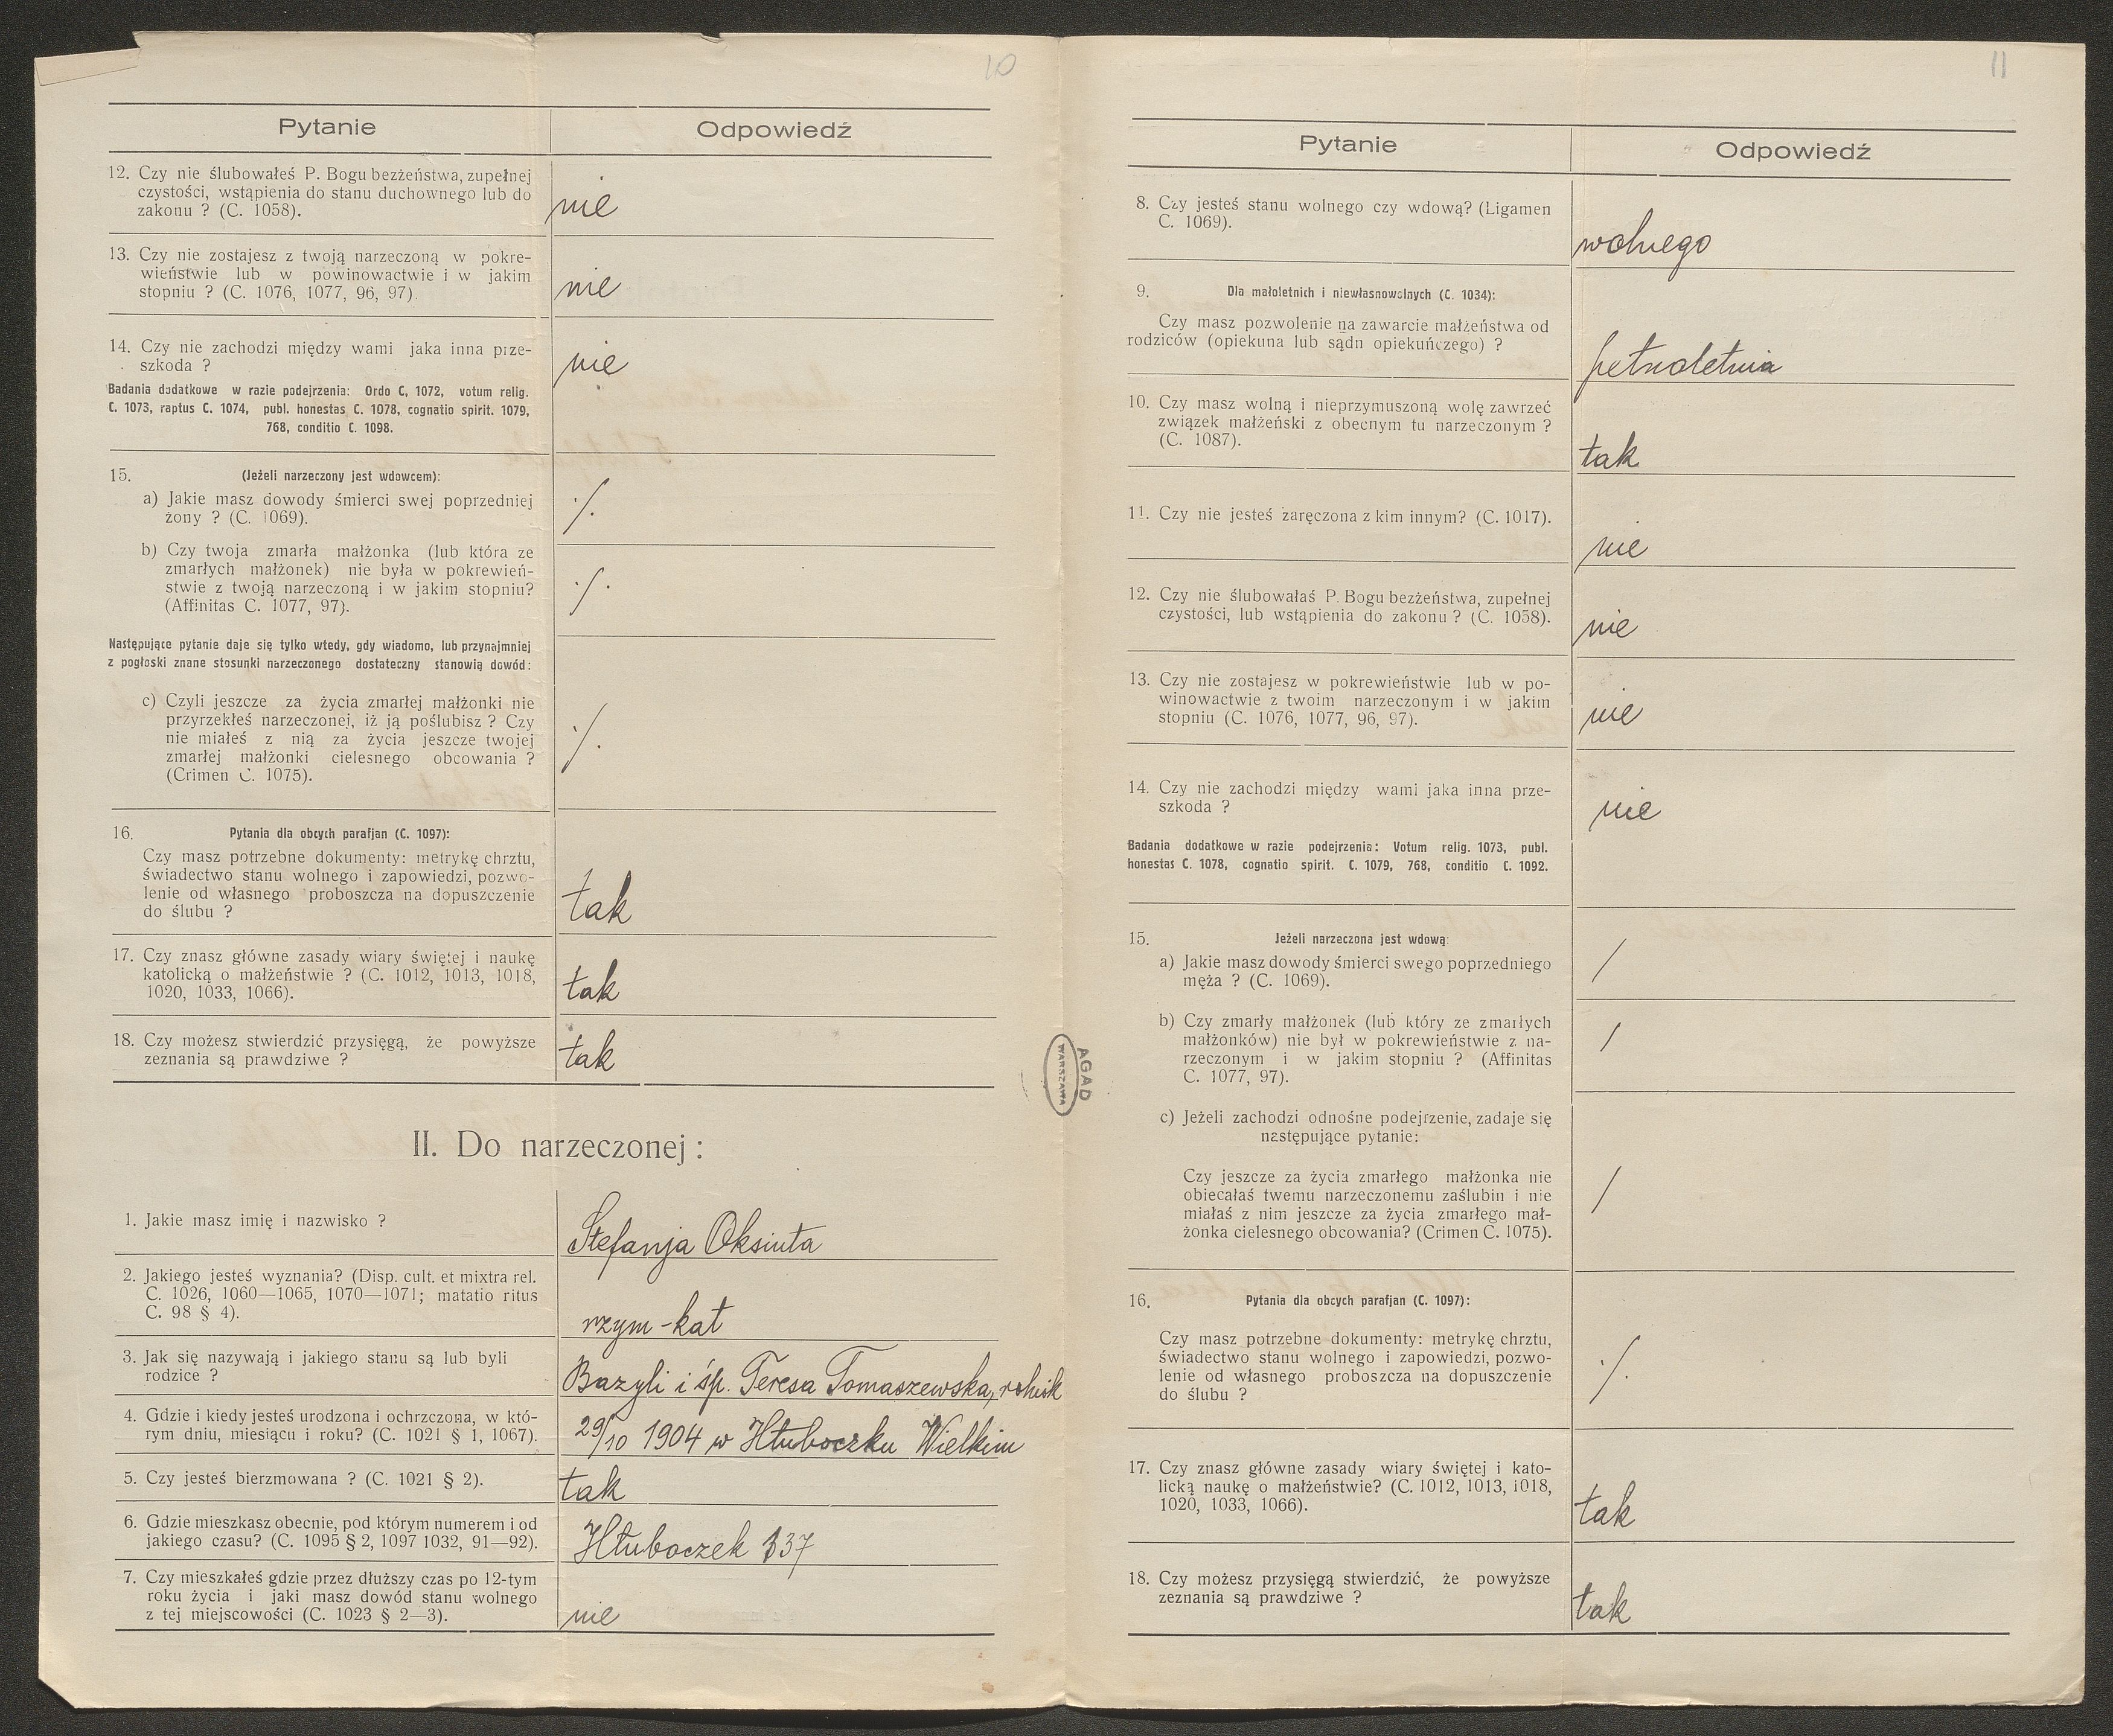 10
Pytanie
Odpowiedź
12. Czy nie ślubowałeś P. Bogu bezżeństwa, zupełnej
czystości, wstąpienia do stanu duchownego lub do
zakonu ? (C. 1058).
nie
13. Czy nie zostajesz z twoją narzeczoną w pokre-
wieństwie lub w powinowactwie i w jakim
stopniu ? (C. 1076, 1077, 96, 97).
nie
14. Czy nie zachodzi między wami jaka inna prze-
szkoda ?
nie
Badania dodatkowe w razie podejrzenia: Ordo C, 1072, votum relig.
C. 1073, raptus C. 1074, publ. honestas C. 1078, cognatio spirit. 1079,
768, conditio C. 1098.
15. (Jeżeli narzeczony jest wdowcem):
a) Jakie masz dowody śmierci swej poprzedniej
żony ? (C. 1069).
./.
b) Czy twoja zmarła małżonka (lub która ze
zmarłych małżonek) nie była w pokrewień-
stwie z twoją narzeczoną i w jakim stopniu?
(Affinitas C. 1077, 97).
./.
Następujące pytanie daje się tylko wtedy, gdy wiadomo, lub przynajmniej
z pogłoski znane stosunki narzeczonego dostateczny stanowią dowód:
c) Czyli jeszcze za życia zmarłej małżonki nie
przyrzekłeś narzeczonej, iż ją poślubisz ? Czy
nie miałeś z nią za życia jeszcze twojej
zmarłej małżonki cielesnego obcowania ?
(Crimen C. 1075).
./.
16. Pytania dla obcych parafjan (C. 1097):
Czy masz potrzebne dokumenty: metrykę chrztu,
świadectwo stanu wolnego i zapowiedzi, pozwo-
lenie od własnego proboszcza na dopuszczenie
do ślubu ?
tak
17. Czy znasz główne zasady wiary świętej i naukę
katolicką o małżeństwie ? (C. 1012, 1013, 1018,
1020, 1033, 1066).
tak
18. Czy możesz stwierdzić przysięgą, że powyższe
zeznania są prawdziwe ?
tak
II. Do narzeczonej :
1. Jakie masz imię i nazwisko ?
Stefanja Oksiuta
2. Jakiego jesteś wyznania? (Disp. cult. et mixtra rel.
C. 1026, 1060—1065, 1070—1071; matatio ritus
C. 98 § 4).
rzym-kat
3. Jak się nazywają i jakiego stanu są lub byli
rodzice ?
Bazyli i śp. Teresa Tomaszewska, rolnik
4. Gdzie i kiedy jesteś urodzona i ochrzczona, w któ-
rym dniu, miesiącu i roku? (C. 1021 § 1, 1067).
29/10 1904 w Hłuboczku Wielkim
5. Czy jesteś bierzmowana ? (C. 1021 § 2).
tak
6. Gdzie mieszkasz obecnie, pod którym numerem i od
jakiego czasu? (C. 1095 § 2, 1097 1032, 91—92).
Hłuboczek 337
7. Czy mieszkałeś gdzie przez dłuższy czas po 12-tym
roku życia i jaki masz dowód stanu wolnego
z tej miejscowości (C. 1023 § 2—3).
nie
AGAD
WARSZAWA
11
Pytanie
Odpowiedź
8. Czy jesteś stanu wolnego czy wdową? (Ligamen
C. 1069).
wolnego
9. Dla małoletnich i niewłasnowolnych (C. 1034):
Czy masz pozwolenie na zawarcie małżeństwa od
rodziców (opiekuna lub sądn opiekuńczego) ?
pełnoletnia
10. Czy masz wolną i nieprzymuszoną wolę zawrzeć
związek małżeński z obecnym tu narzeczonym ?
(C. 1087).
tak
11. Czy nie jesteś zaręczona z kim innym? (C. 1017).
nie
12. Czy nie ślubowałaś P. Bogu bezżeństwa, zupełnej
czystości, lub wstąpienia do zakonu ? (C. 1058).
nie
13. Czy nie zostajesz w pokrewieństwie lub w po-
winowactwie z twoim narzeczonym i w jakim
stopniu (C. 1076, 1077, 96, 97).
nie
14. Czy nie zachodzi między wami jaka inna prze-
szkoda ?
nie
Badania dodatkowe w razie podejrzenia: Votum relig. 1073, publ.
honestas C. 1078, cognatio spirit. C. 1079, 768, conditio C. 1092.
15. Jeżeli narzeczona jest wdową:
a) Jakie masz dowody śmierci swego poprzedniego
męża ? (C. 1069).
/
b) Czy zmarły małżonek (lub który ze zmarłych
małżonków) nie był w pokrewieństwie z na-
rzeczonym i w jakim stopniu ? (Affinitas
C. 1077, 97).
/
c) Jeżeli zachodzi odnośne podejrzenie, zadaje się
następujące pytanie:
Czy jeszcze za życia zmarłego małżonka nie
obiecałaś twemu narzeczonemu zaślubin i nie
miałaś z nim jeszcze za życia zmarłego mał-
żonka cielesnego obcowania? (Crimen C. 1075).
/
16. Pytania dla obcych parafjan (C. 1097):
Czy masz potrzebne dokumenty: metrykę chrztu,
świadectwo stanu wolnego i zapowiedzi, pozwo-
lenie od własnego proboszcza na dopuszczenie
do ślubu ?
./.
17. Czy znasz główne zasady wiary świętej i kato-
licką naukę o małżeństwie? (C. 1012, 1013, 1018,
1020, 1033, 1066).
tak
18. Czy możesz przysięgą stwierdzić, że powyższe
zeznania są prawdziwe ?
tak